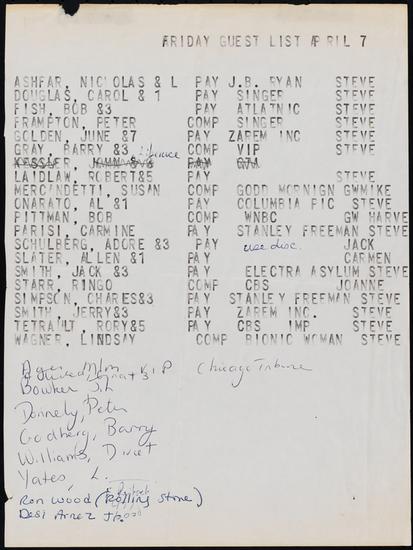 FRIDAY GUEST LIST APRIL 7
ASHFAR, NICOLAS & L PAY J.B. RYAN STEVE
DOUGLAS, CAROL & 1 PAY SINGER STEVE
FISH, BOB &3 PAY ATLATNIC STEVE
FRAMPTON, PETER COMP SINGER STEVE
GOLDEN, JUNE &7 PAY ZAREM INC STEVE
GRAY, BARRY &3 COMP VIP STEVE
KESSLER, JOHN &3 PAY
LAIDLAW, ROBERT&5 PAY STEVE
MERCANDETTI, SUSAN COMP GODD MORNIGN GWMIKE
ONARATO, AL &1 PAY COLUMBIA PIC STEVE
PITTMAN, BOB COMP WNBC GW HARVE
PARISI, CARMINE PAY STANLEY FREEMAN STEVE
SCHULBERG, ADORE &3 PAY use disc. JACK
SLATER, ALLEN &1 PAY CARMEN
SMITH, JACK &3 PAY ELECTRA ASYLUM STEVE
STARR, RINGO COMP CBS JOANNE
SIMPSON, CHARES&3 PAY STANLEY FREEMAN STEVE
SMITH, JERRY&3 PAY ZAREM INC. STEVE
TETRAULT, RORY&5 PAY CBS IMP STEVE
WAGNER, LINDSAY COMP BIONIC WOMAN STEVE
V.I.P Chicago Tribune
Bowker
Donnely, Peter
Godberg, Barry
Williams,
Yates, L.
Ron Wood (Rolling Stone)
Desi Arnez Jr.